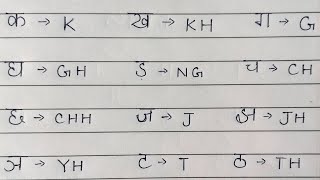 क → K ख → KH ग → G
घ → GH ङ → NG च → CH
छ → CHH ज → J झ → JH
ञ → YH ट → T ठ → TH